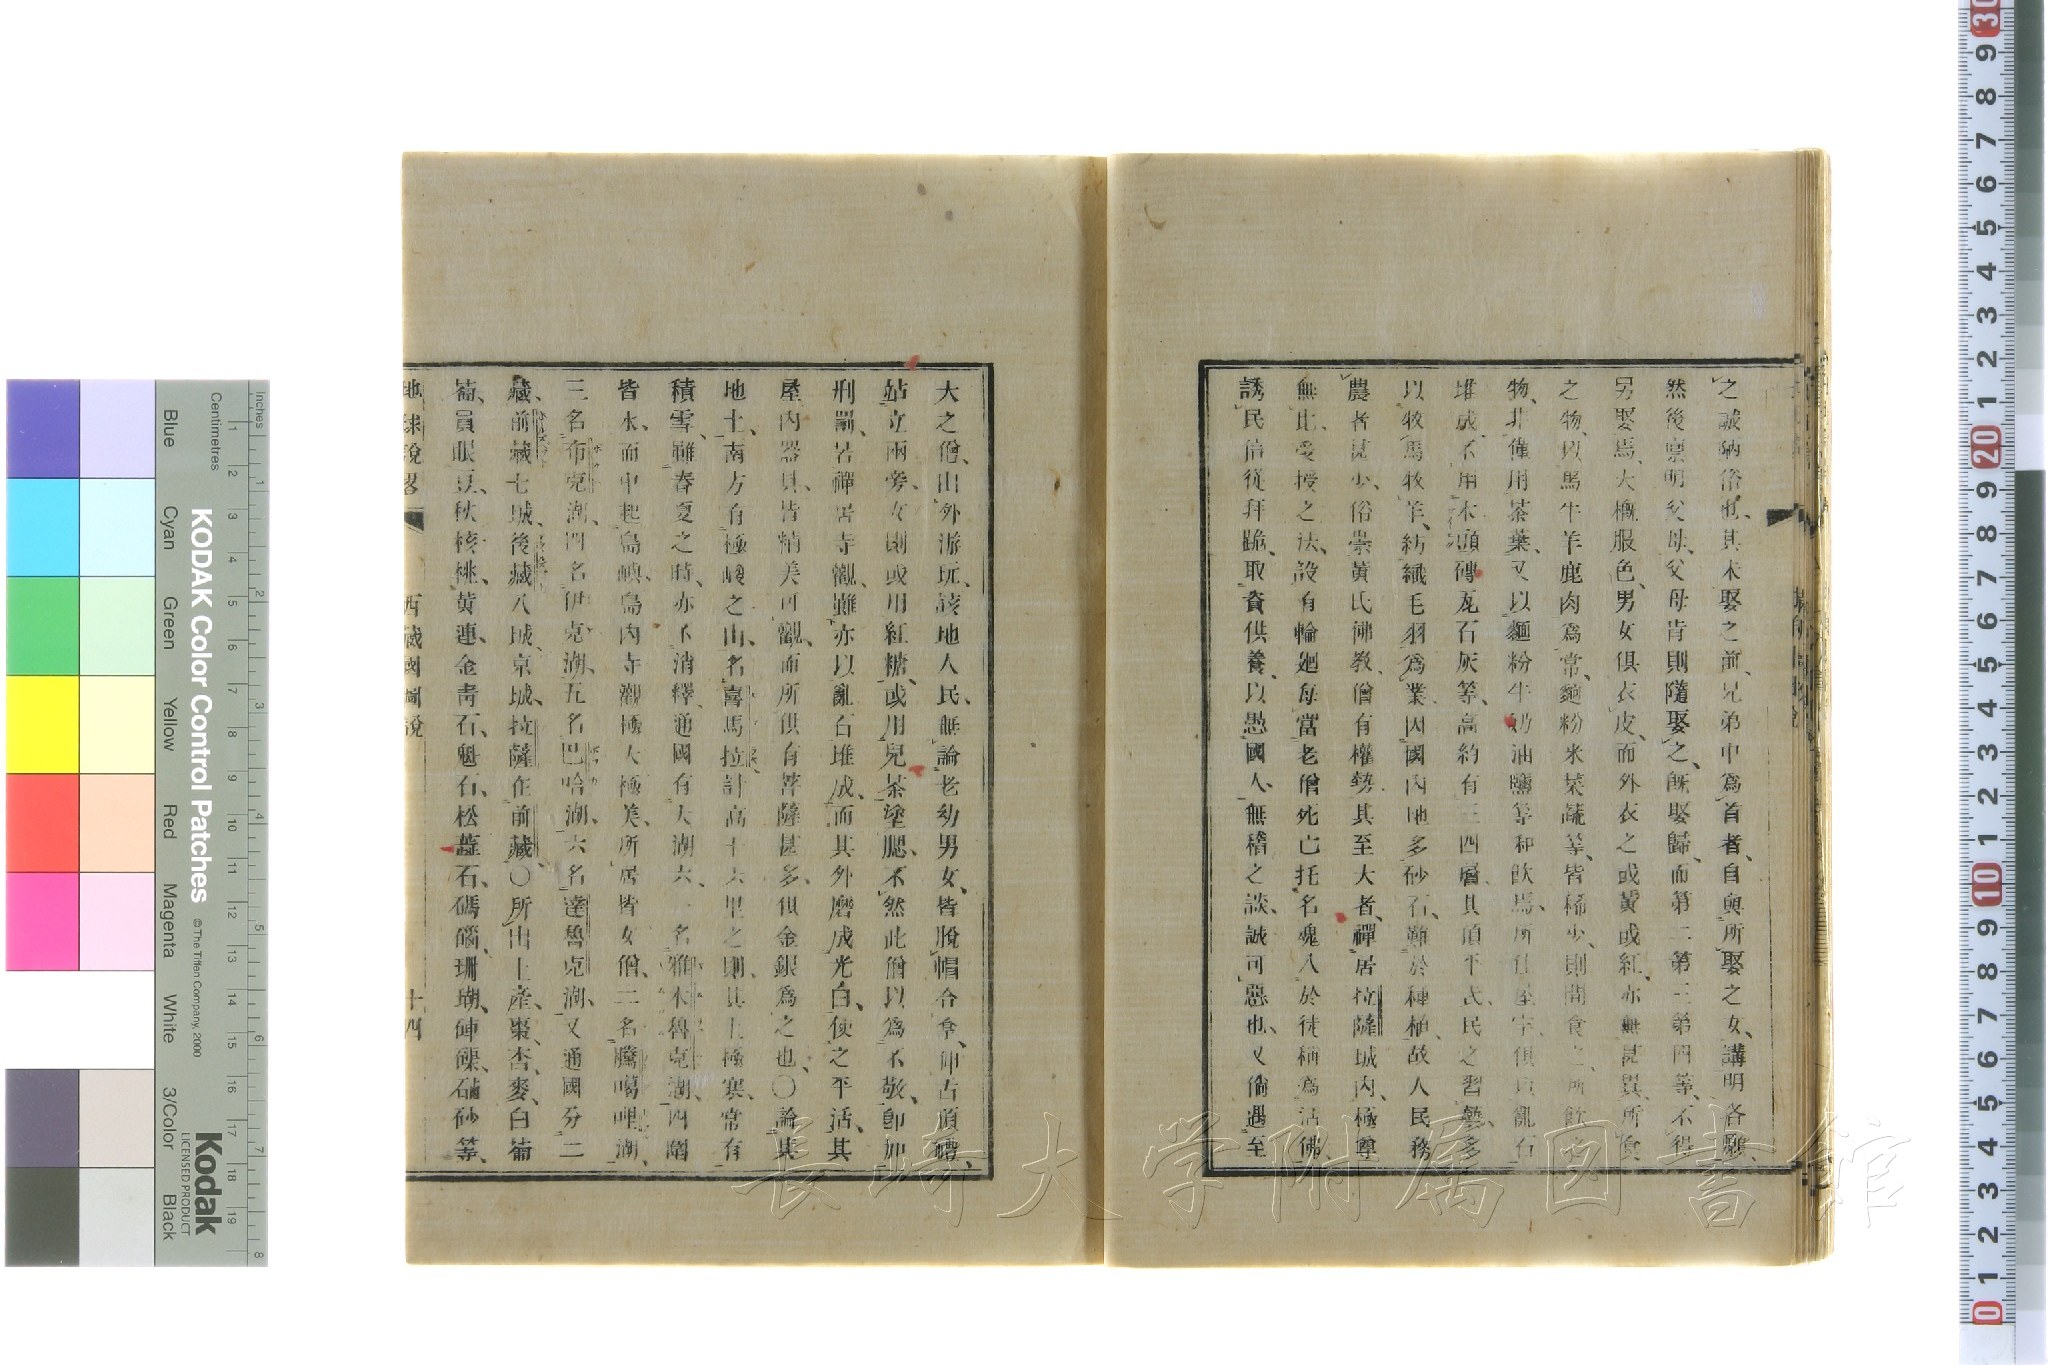 之誠陋俗也、其未娶之前、兄弟中爲首者、自與所娶之女、講明各願
然後禀明父母、父母肯則隨娶之、旣娶歸、而第二第三第四等、不得
另娶焉、大槪服色、男女俱衣皮、而外衣之或黃或紅、亦無甚異、所食
之物、以馬牛羊鹿肉爲常、麵粉米菜蔬等、皆稀少、則間食之、所飮之
物、非僅用茶葉、又以麵粉牛奶油鹽等和飮焉、所住屋宇、俱以亂石
堆成、不用木頭磚瓦石灰等、高約有三四層、其頂平式、民之習藝、多
以牧馬牧羊、紡織毛羽爲業、因國內地多砂石、難於種植、故人民務
農者甚少、俗崇黃氏佛教、僧有權勢、其至大者、禪居拉薩城內、極尊
無比、受授之法、設有輪廻、每當老僧死亡、托名魂入於徒、稱爲活佛、
誘民信從拜跪、取資供養、以愚國人、無稽之談、誠可惡也、又倘遇至
大之僧、出外游玩、該地人民、無論老幼男女、皆脫帽合拿、仰占頂禮、
站立兩旁、女則或用紅糖、或用兒茶塗腮、不然此僧以爲不敬、卽加
刑罰、若禪居寺觀、雖亦以亂石堆成、而其外磨成光白、使之平活、其
屋內器具、皆精美可觀、而所供有菩薩甚多、俱金銀爲之也、〇論其
地土、南方有極峻之山、名喜馬拉、計高十六里之則、其上極寒、常有
積雪、雖春夏之時、亦不消釋、通國有大湖六、一名雅木魯克湖、四圍
皆水、而中起島嶼、島內寺觀極大極美、所居皆女僧、二名騰噶哩湖、
三名布克湖、四名伊克湖、五名巴哈湖、六名達魯克湖、又通國分二
藏、前藏七城、後藏八城、京城拉薩在前藏、〇所出土產、棗、杏、麥、白葡
萄、員眼豆、秋核桃、黃連、金靑石、魁石、松蕋石、碼磂、珊瑚、硨磲、硇砂等、
地球說畧　西藏國圖說　十四
Blue
Cyan
Green
Yellow
Red
Magenta
White
3/Color
Black
KODAK Color Control Patches
© The Tiffen Company, 2000
Kodak
LICENSED PRODUCT
Centimetres
Inches
長崎大学附属図書館